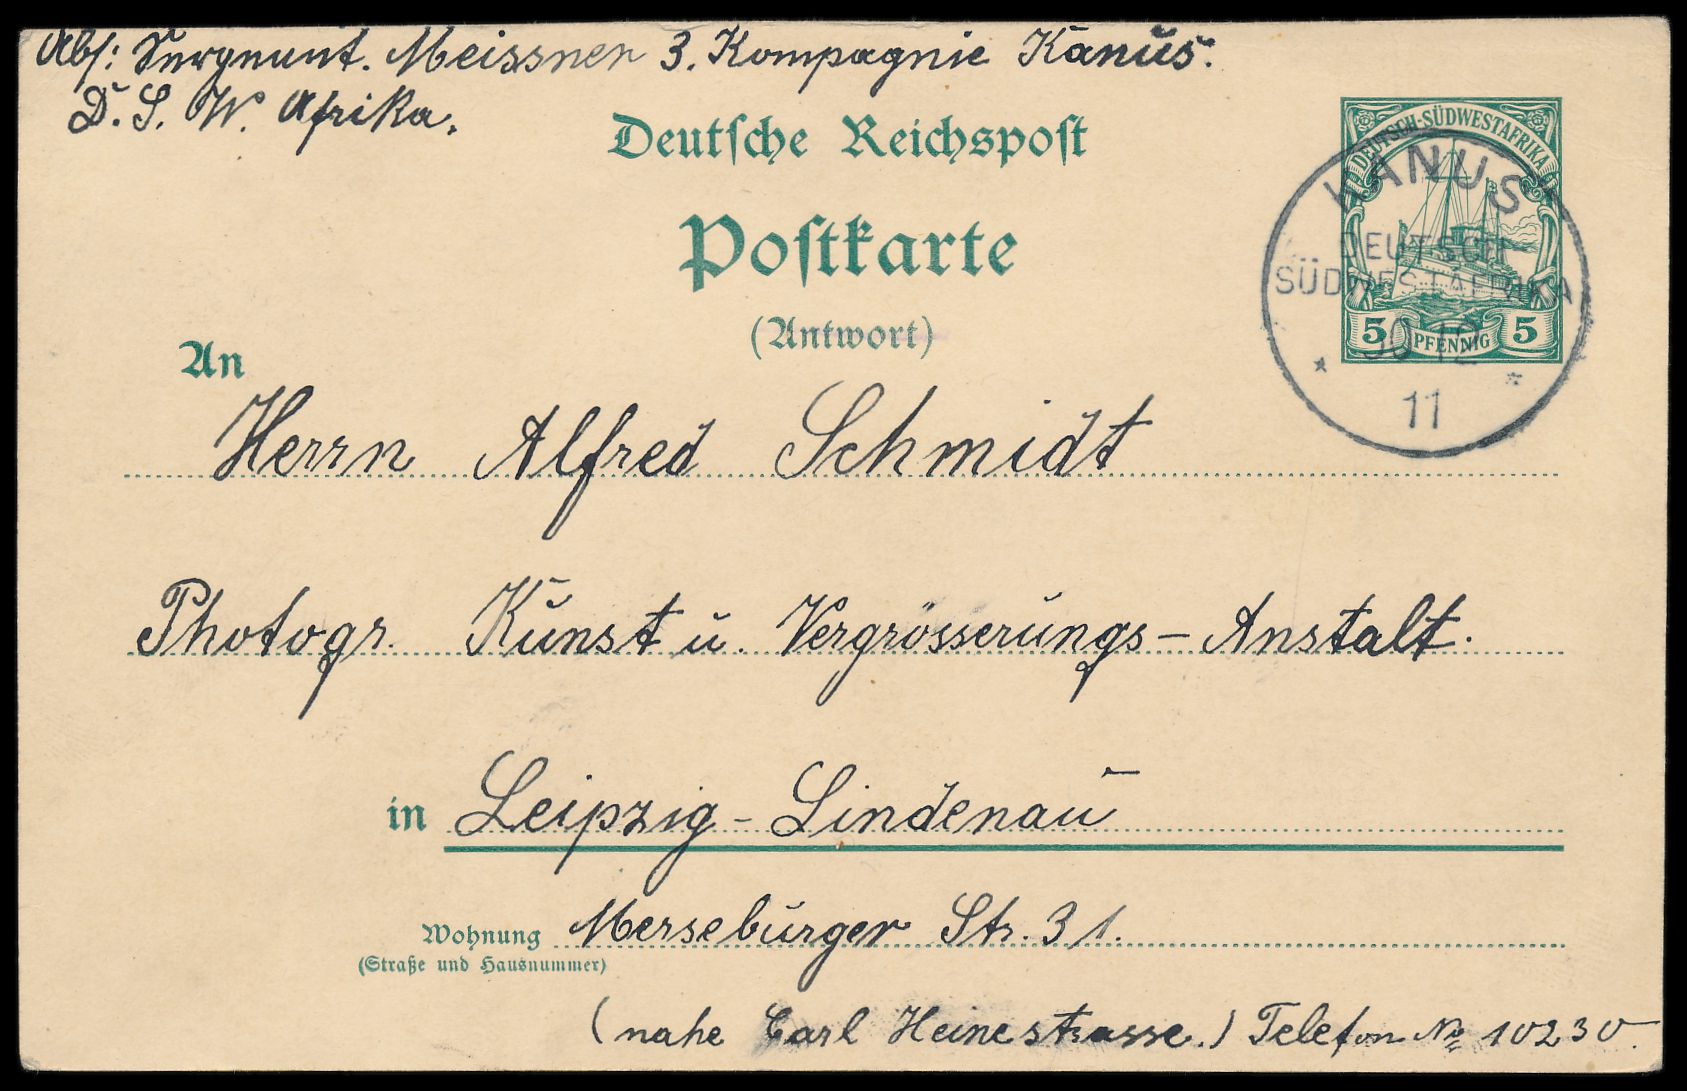 Abs: Sergeant. Meissner 3. Kompagnie Kanus.
D. S. W. Afrika.
Deutsche Reichspost
Postkarte
(Antwort)
DEUTSCH-SÜDWESTAFRIKA
5 PFENNIG 5
KANUS
DEUTSCH-
SÜDWESTAFRIKA
* 30 12 *
11
An Herrn Alfred Schmidt
Photogr. Kunst u. Vergrösserungs-Anstalt.
in Leipzig-Lindenau
Wohnung Merseburger Str. 31.
(Straße und Hausnummer)
(nahe Carl Heinestrasse.) Telefon No 10230.